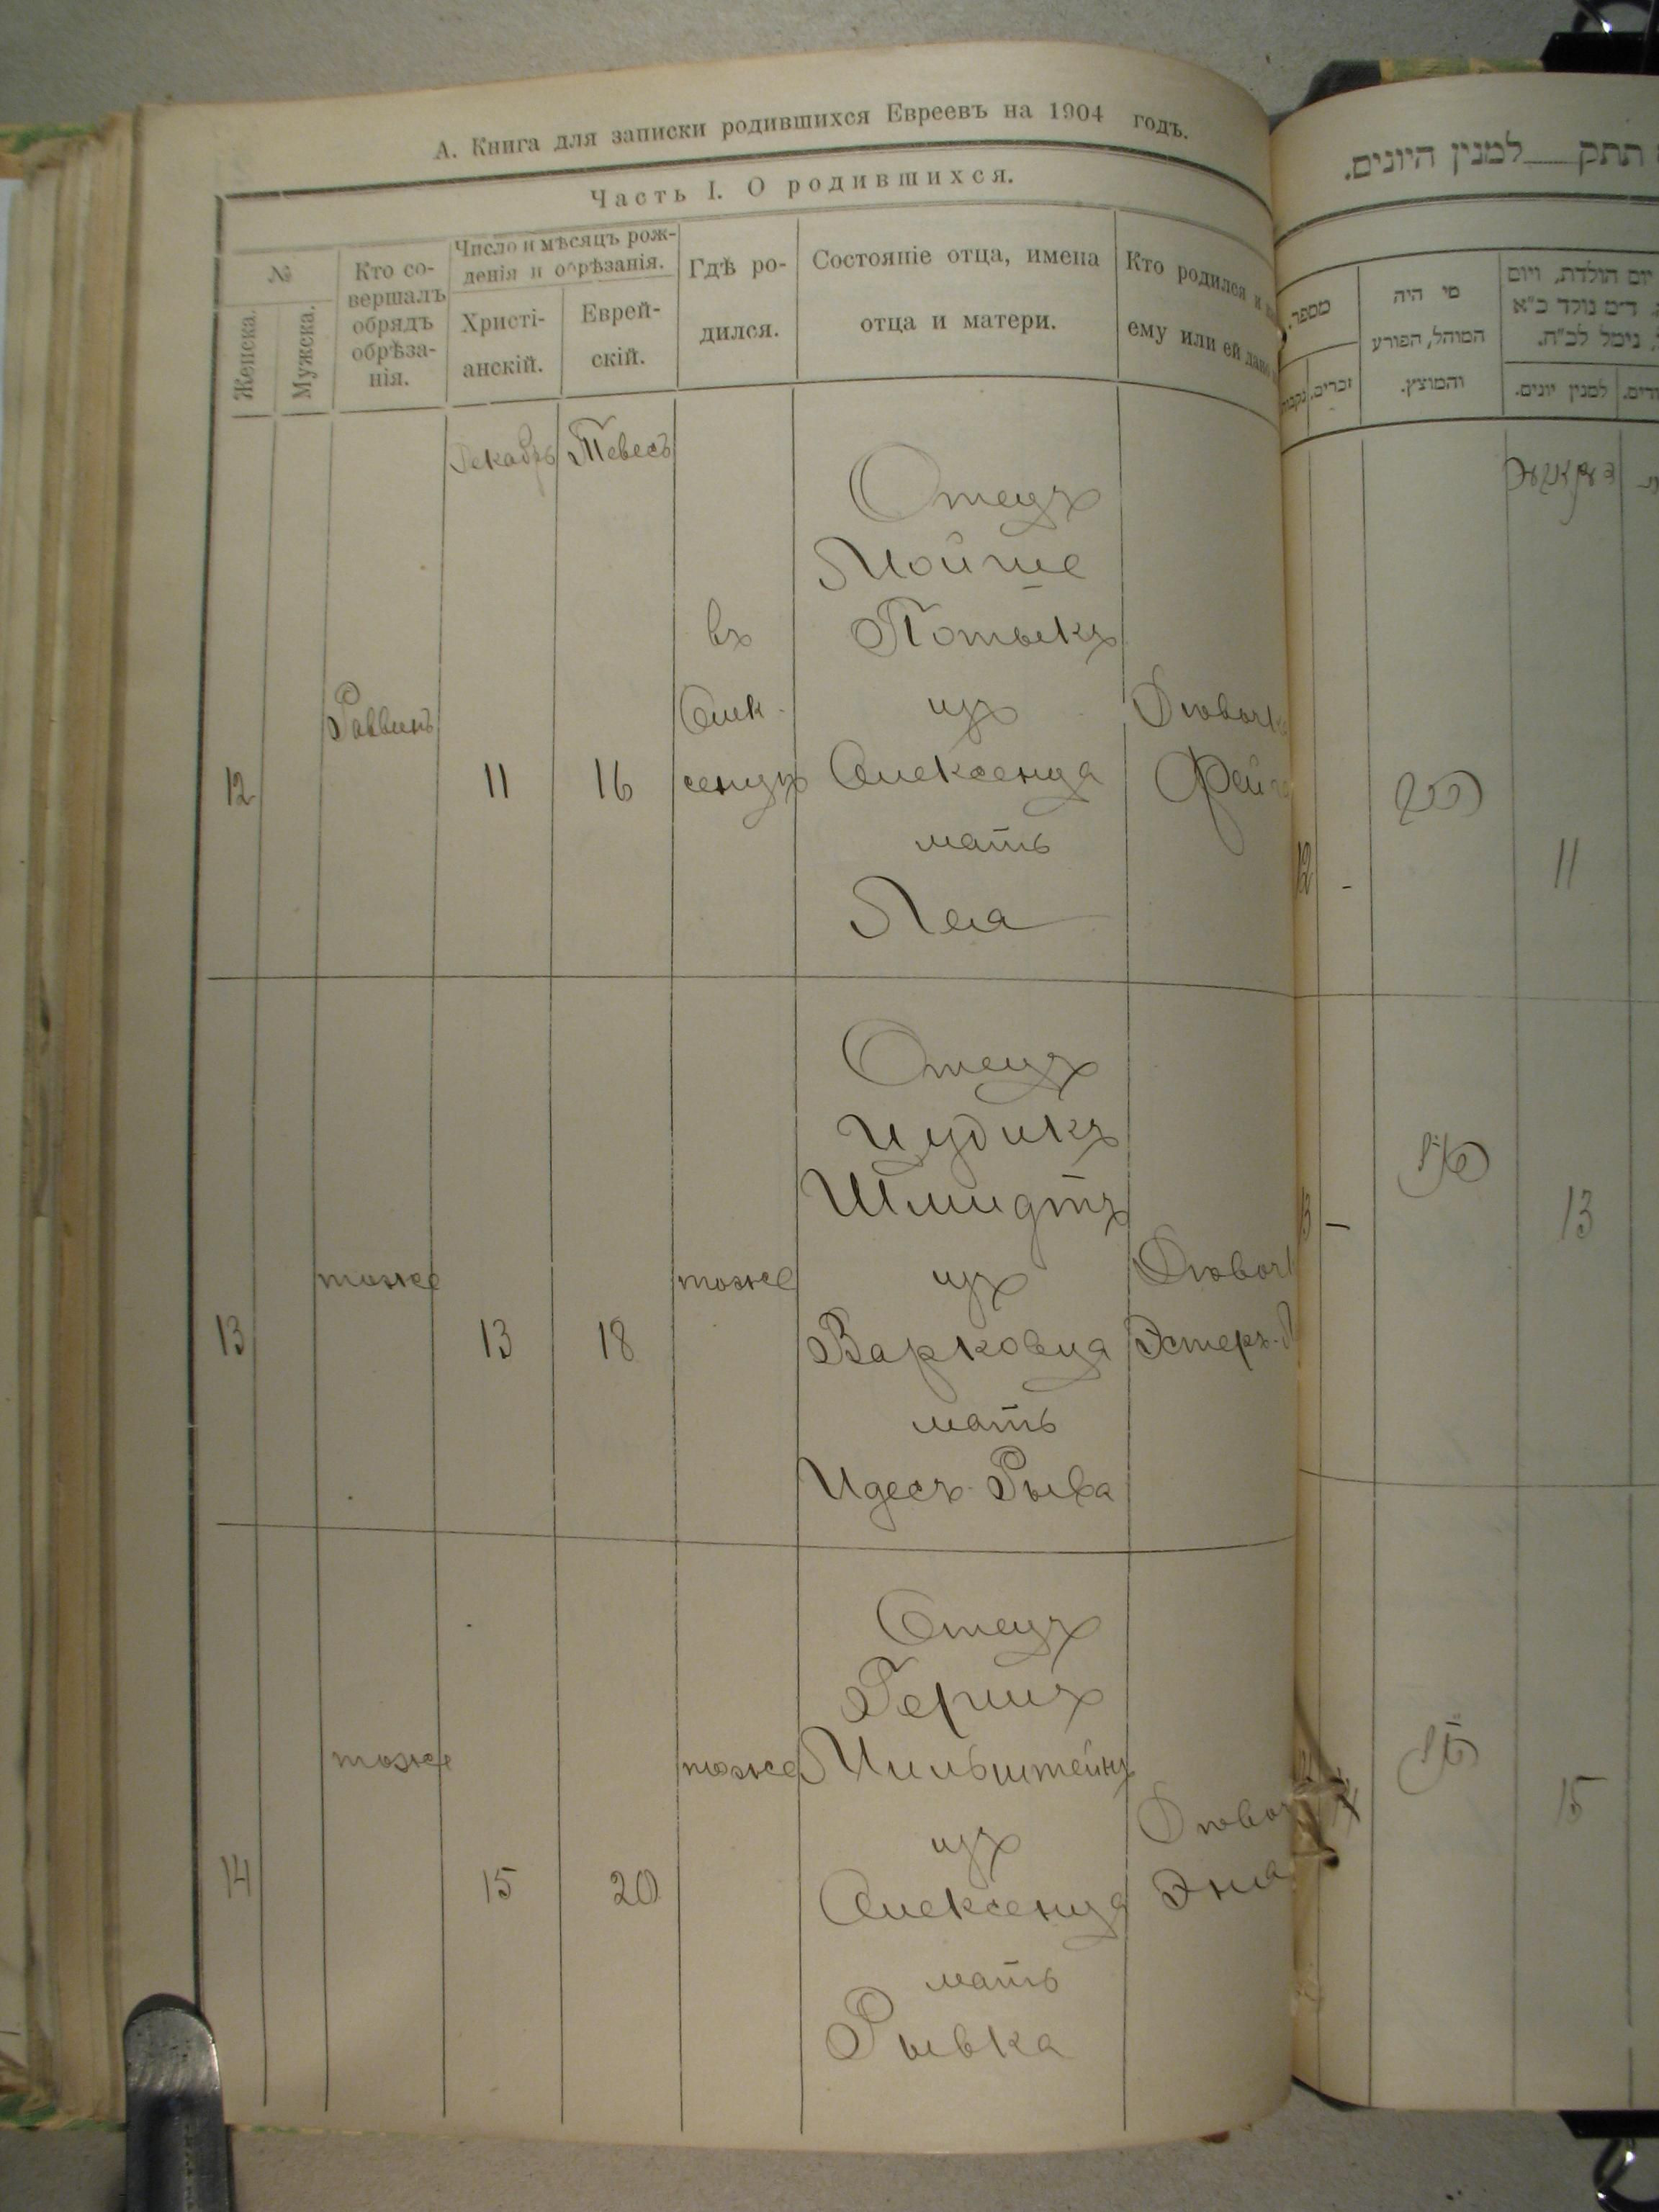 А. Книга для записки родившихся Евреевъ на 1904 годъ.
Часть I. О родившихся.
№
Женска.
Мужска.
Кто со-
вершалъ
обрядъ
обрѣза-
нія.
Число и мѣсяцъ рож-
денія и обрѣзанія.
Христі-
анскій.
Еврей-
скій.
Гдѣ ро-
дился.
Состояніе отца, имена
отца и матери.
Кто родился и
ему или ей дано
Декабрь
Тевесъ
12
Раввинъ
11
16
въ
Олек-
сенцѣ
Отецъ
Мойше
Потыкъ
изъ
Олексенца
мать
Леа
Фейга
13
тоже
13
18
тоже
Отецъ
Иудикъ
Шмидтъ
изъ
Варковца
мать
Идесъ-Рыва
Эстеръ-
14
тоже
15
20
тоже
Отецъ
Гершъ
Мильштейнъ
изъ
Олексенца
мать
Рывка
Эна
תתק למנין היונים.
מספר.
נקבות
זכרים.
מי היה
המוהל, הפורע
והמוצץ.
יום הולדת, ויום
ד״מ נולד כ״א
נימל לכ״ח.
למנין יונים.
12
-
11
13
-
13
15